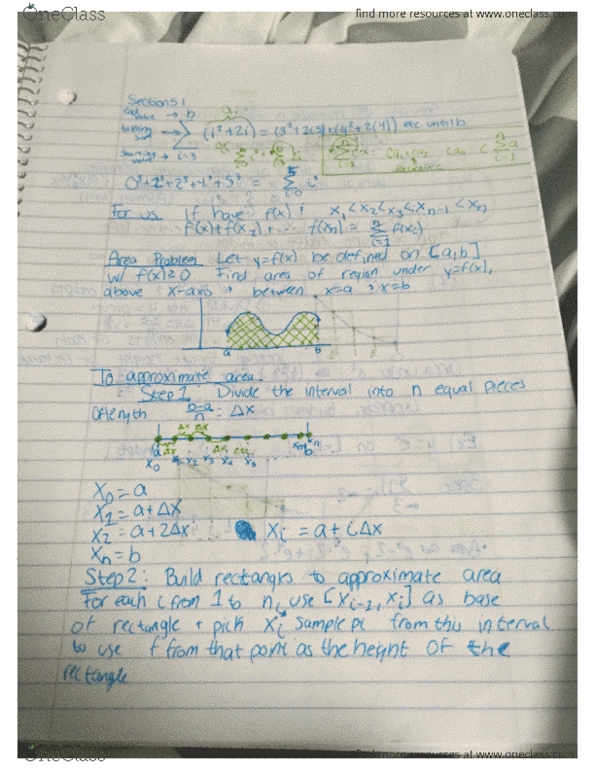 OneClass
find more resources at www.oneclass.com
Section 5.1
end value → b
∑ (i²+2i) = (3²+2(3)) + (4²+2(4)) etc. until b
value → i=3
0³+1³+2³+4³+5³ = ∑ i³
For us if have f(x) & x₁<x₂<x₃<xₙ₋₁<xₙ
f(x)+f(x₂)+... f(xₙ) = ∑ f(xᵢ)
Area Problem Let y=f(x) be defined on [a,b]
w/ f(x)≥0 Find area of region under y=f(x),
above x-axis & between x=a & x=b
a b
To approximate area
Step 1 Divide the interval into n equal pieces
of length b-a/n = Δx
a Δx Δx Δx b
x₀ x₂ x₃ x₄ x₅ xₙ
x₀=a
x₁=a+Δx
x₂=a+2Δx xᵢ = a+iΔx
xₙ=b
Step 2: Build rectangles to approximate area
For each i from 1 to n, use [xᵢ₋₁, xᵢ] as base
of rectangle + pick xᵢ* sample pt from this interval
to use f from that point as the height of the
rectangle
OneClass
find more resources at www.oneclass.com